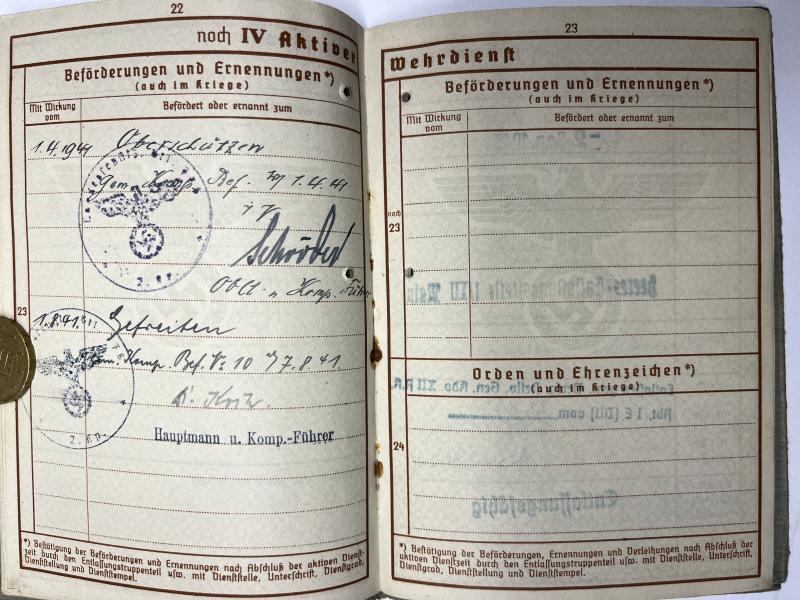 22
noch IV Aktiver
Beförderungen und Ernennungen*)
(auch im Kriege)
Mit Wirkung vom
Befördert oder ernannt zum
1.4.1941 Oberschützen
gem. Komp. Bef. 1.4.41
Schröder
Oblt. u. Komp. Führer
23
1.8.41 Gefreiten
gem. Komp. Bef. Nr. 10 7.8.41
2. Kp.
Hauptmann u. Komp.-Führer
*) Bestätigung der Beförderungen und Ernennungen nach Abschluß der aktiven Dienst-
zeit durch den Entlassungstruppenteil usw. mit Dienststelle, Unterschrift, Dienstgrad,
Dienststellung und Dienststempel.
23
Wehrdienst
Beförderungen und Ernennungen*)
(auch im Kriege)
Mit Wirkung vom
Befördert oder ernannt zum
noch
23
Orden und Ehrenzeichen*)
(auch im Kriege)
24
*) Bestätigung der Beförderungen, Ernennungen und Verleihungen nach Abschluß der
aktiven Dienstzeit durch den Entlassungstruppenteil usw. mit Dienststelle, Unterschrift,
Dienstgrad, Dienststellung und Dienststempel.